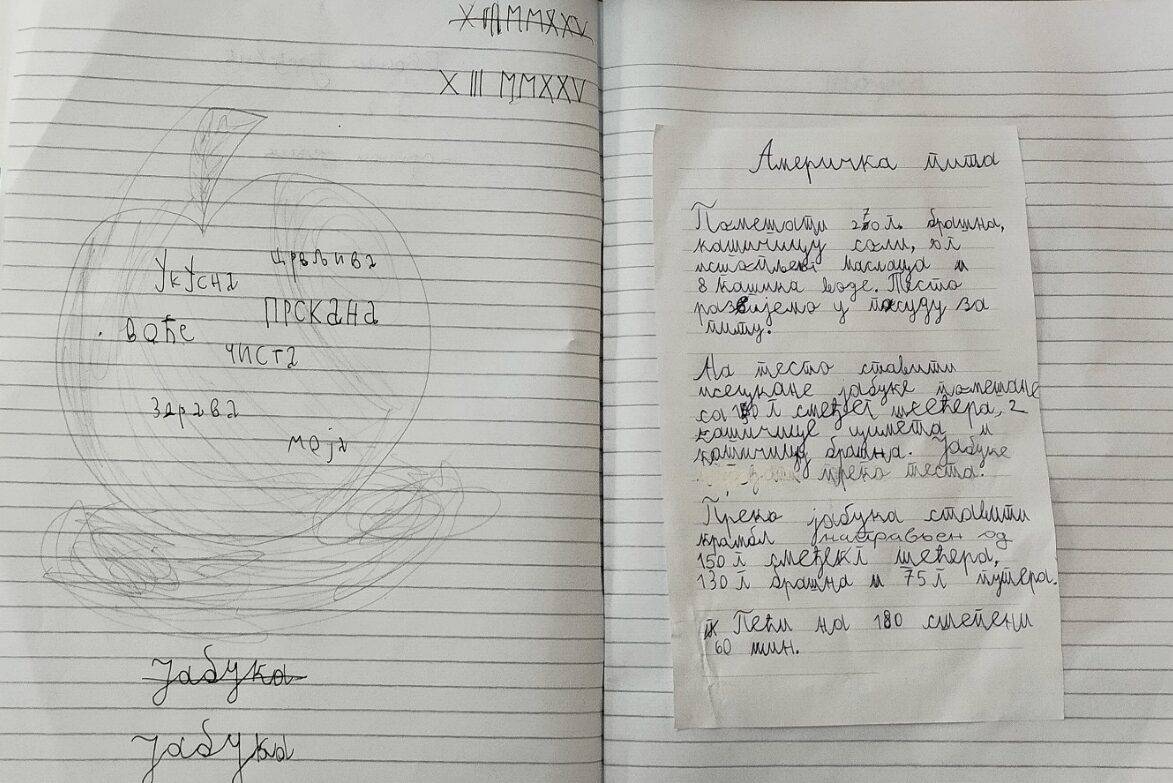 X III MMXXV
укусна
црвљива
воће
прскана
чиста
здрава
моја
Јабука
Јабука
Америчка пита
Помешати 270 г. брашна,
кашичицу соли,
истопљеног маслаца и
8 кашика воде. Тесто
развијемо у посуду за
питу.
На тесто ставити
исецкане јабуке помешане
са г смеђег шећера, 2
кашичице цимета и
кашичицу брашна. Јабуке
преко теста.
Преко јабука ставити
крамбл направљен од
150 г смеђег шећера,
130 г брашна и 75 г путера.
Пећи на 180 степени
60 мин.